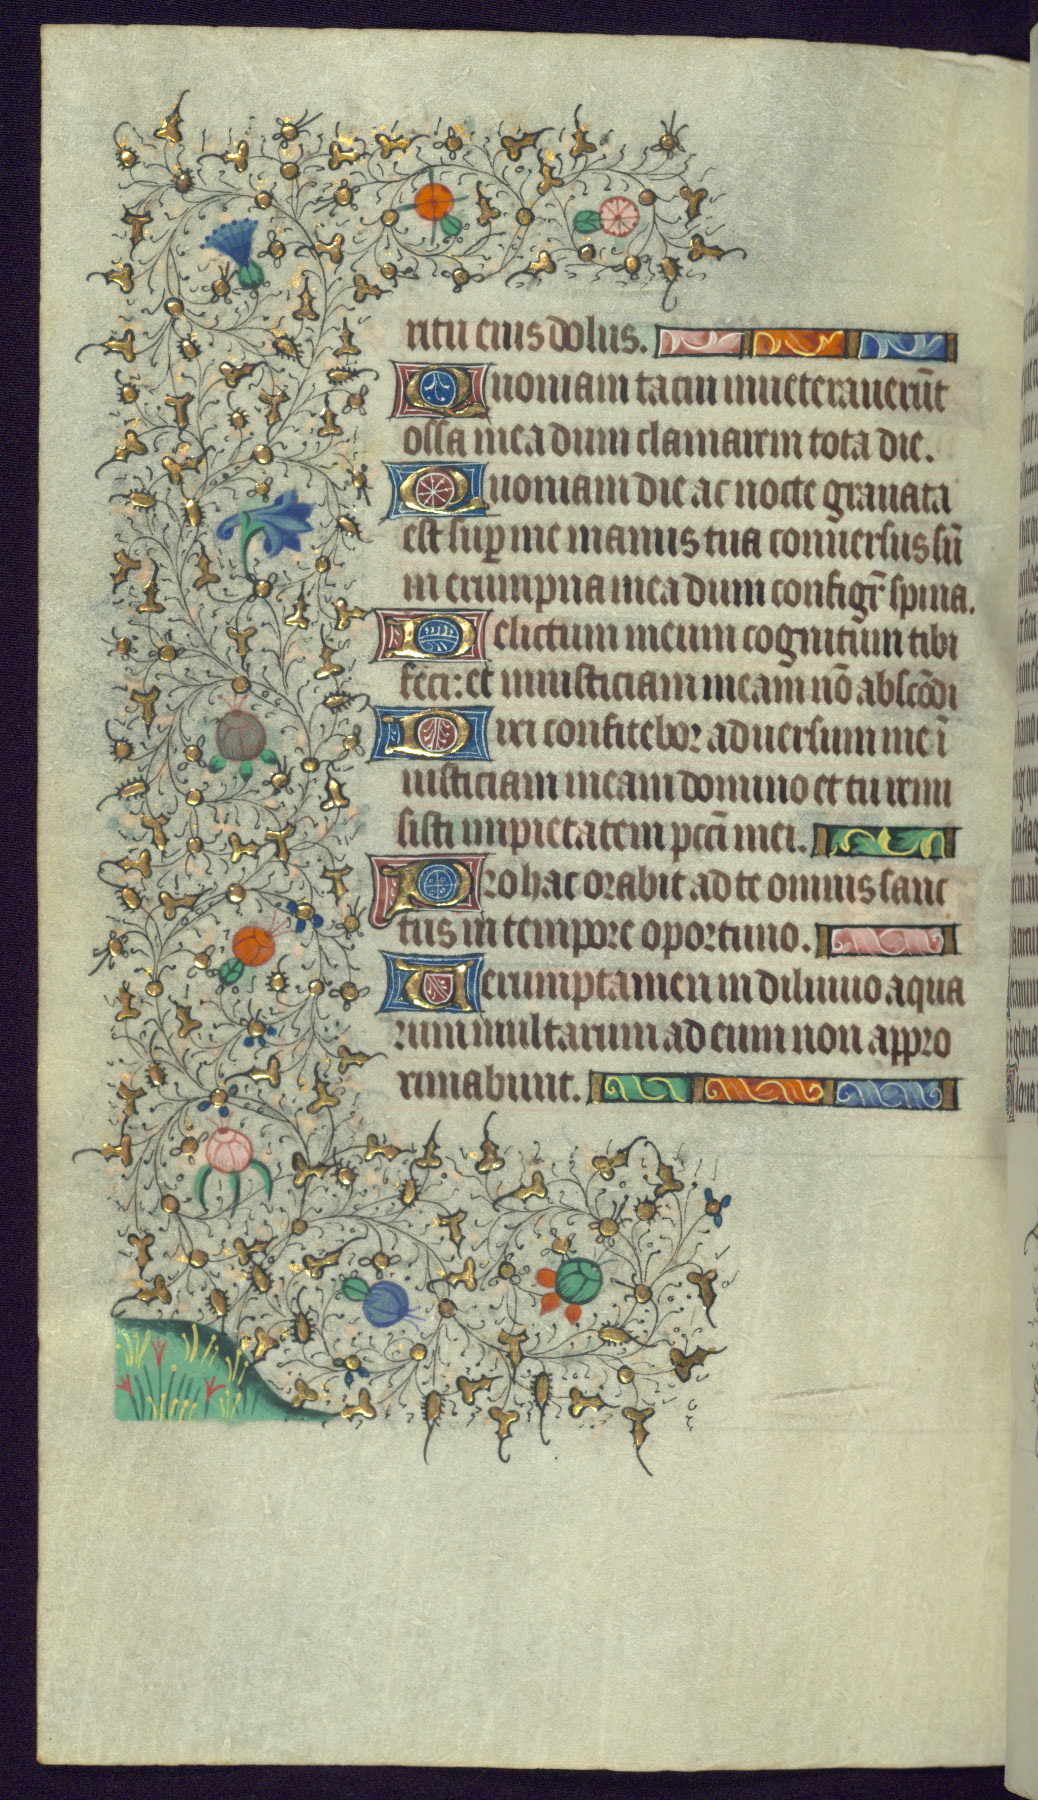 ritu eius dolus.
Quoniam tacui inueterauerūt
ossa mea dum clamarem tota die.
Quoniam die ac nocte grauata
est sup̱ me manus tua conuersus sū
in erumpna mea dum configr̄ spina.
Delictum meum cognitum tibi
feci: et iniusticiam meam nō abscōdi
Dixi confitebor aduersum me ī
iusticiam meam domino et tu remi
sisti impietatem pcc̄i mei.
Pro hac orabit ad te omnis sanc
tus in tempore oportuno.
Uerumptamen in diluuio aqua
rum multarum ad eum non appro
ximabunt.